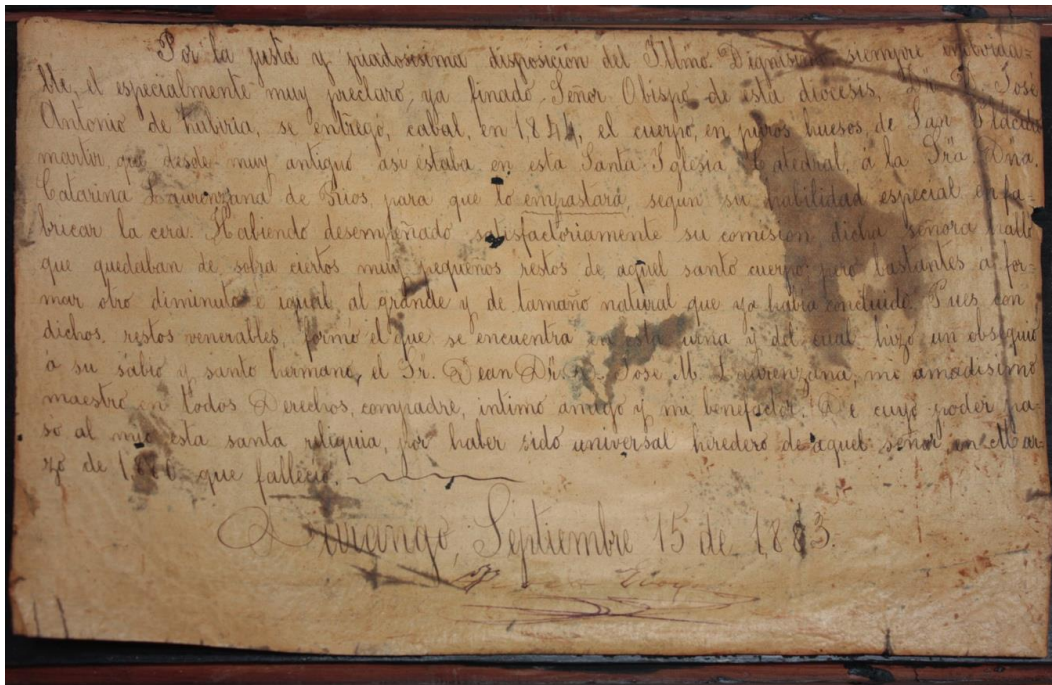 Por la justa y piadosisima disposición del Illmo. Dignisimo siempre inolvida=
ble, el especialmente muy preclaro, ya finado, Señor Obispo de esta diocesis, Dr. D. José
Antonio de Zubiria, se entregó, cabal, en 1844, el cuerpo, en puros huesos, de San Plácido
martir, que desde muy antiguo así estaba en esta Santa Iglesia Catedral, á la Sra. Dña.
Catarina Laurenzana de Rios, para que lo empastara, segun su habilidad especial en fa=
bricar la cera. Habiendo desempeñado satisfactoriamente su comision dicha señora halló
que quedaban de sobra ciertos muy pequeños restos de aquel santo cuerpo; pero bastantes a for=
mar otro diminuto e igual al grande y de tamaño natural que ya habia concluido. Pues con
dichos restos venerables, formó el que se encuentra en esta urna y del cual hizo un obsequio
á su sábio y santo hermano, el Sr. Dean Dr. D. José M. Laurenzana, mi amadisimo
maestro en todos Derechos, compadre, intimo amigo y mi benefactor. De cuyo poder pa=
só al mio esta santa reliquia, por haber sido universal heredero de aquel señor en Mar=
zo de que falleció.
Durango, Septiembre 15 de 1883.